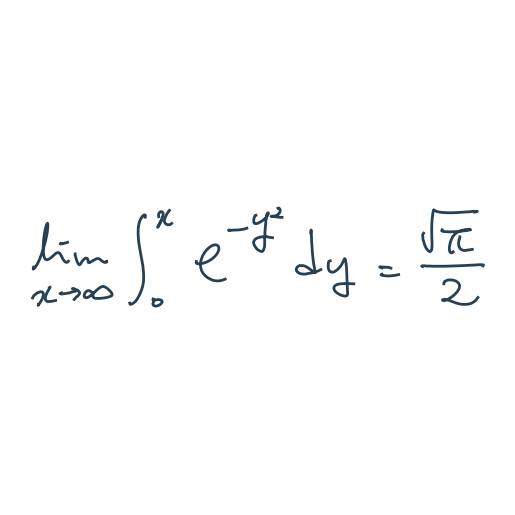 lim x→∞ ∫₀ˣ e^{-y²} dy = √π/2